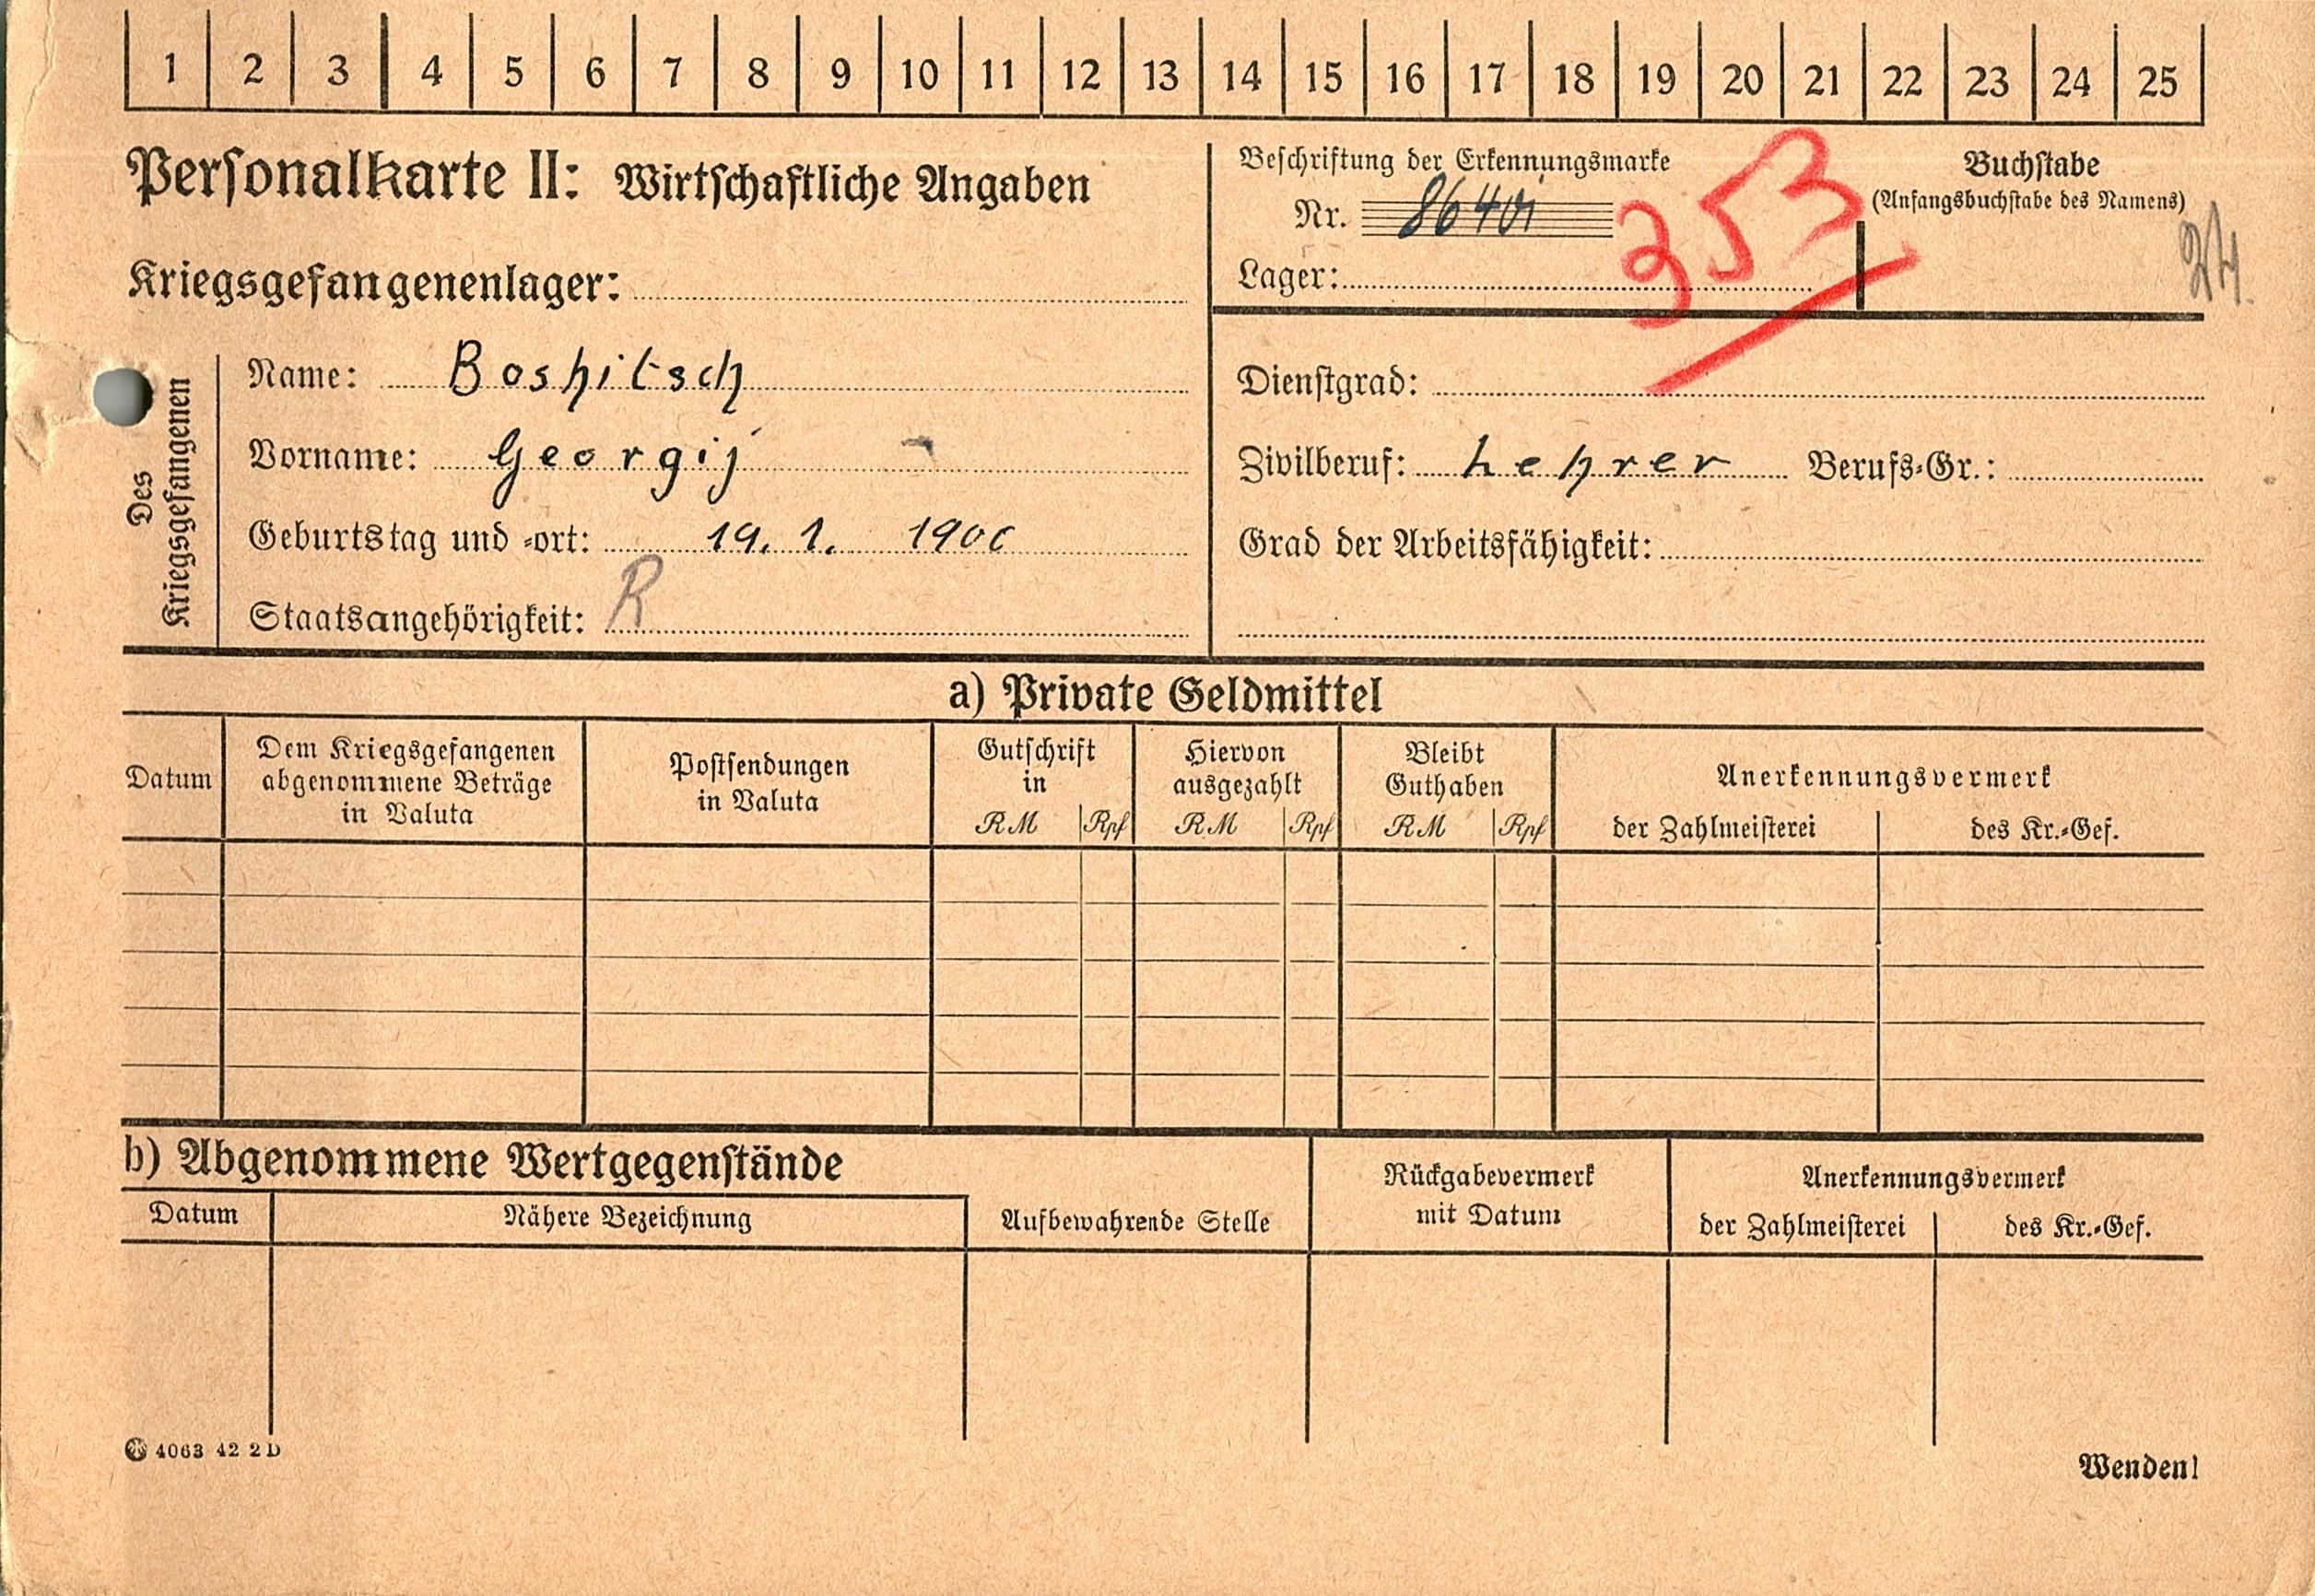 1 2 3 4 5 6 7 8 9 10 11 12 13 14 15 16 17 18 19 20 21 22 23 24 25
Personalkarte II: Wirtschaftliche Angaben
Kriegsgefangenenlager:
Beschriftung der Erkennungsmarke
Nr.
Lager:
353
Buchstabe
(Anfangsbuchstabe des Namens)
24.
Des
Kriegsgefangenen
Name: Boshitsch
Vorname: Georgij
Geburtstag und -ort: 19. 1. 1900
Staatsangehörigkeit: R
Dienstgrad:
Zivilberuf: Lehrer Berufs-Gr.:
Grad der Arbeitsfähigkeit:
a) Private Geldmittel
Datum
Dem Kriegsgefangenen
abgenommene Beträge
in Valuta
Postsendungen
in Valuta
Gutschrift
in
RM Rpf
Hiervon
ausgezahlt
RM Rpf
Bleibt
Guthaben
RM Rpf
Anerkennungsvermerk
der Zahlmeisterei des Kr.-Gef.
b) Abgenommene Wertgegenstände
Datum Nähere Bezeichnung
Aufbewahrende Stelle
Rückgabevermerk
mit Datum
Anerkennungsvermerk
der Zahlmeisterei des Kr.-Gef.
4063 42 2 D
Wenden!